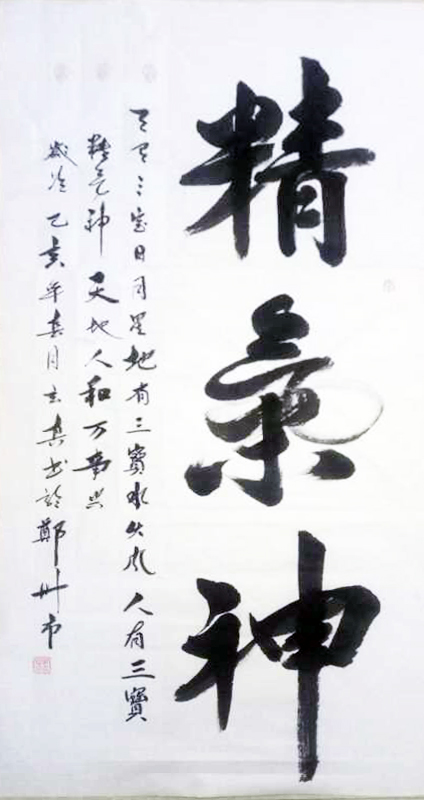 精氣神
天有三宝日月星地有三寶水火风人有三寶
精气神天地人和万事兴
歲次乙亥年春月书於鄭州市